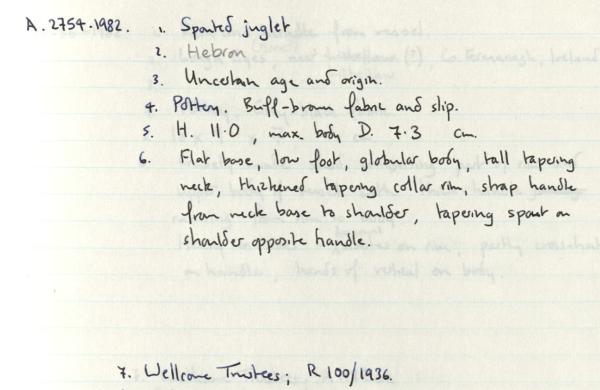 A.2754.1982. 1. Spouted juglet
2. Hebron
3. Uncertain age and origin.
4. Pottery. Buff-brown fabric and slip.
5. H. 11.0, max. body D. 7.3 cm.
6. Flat base, low foot, globular body, tall tapering
neck, thickened tapering collar rim, strap handle
from neck base to shoulder, tapering spout on
shoulder opposite handle.
7. Wellcome Trustees; R 100/1936.